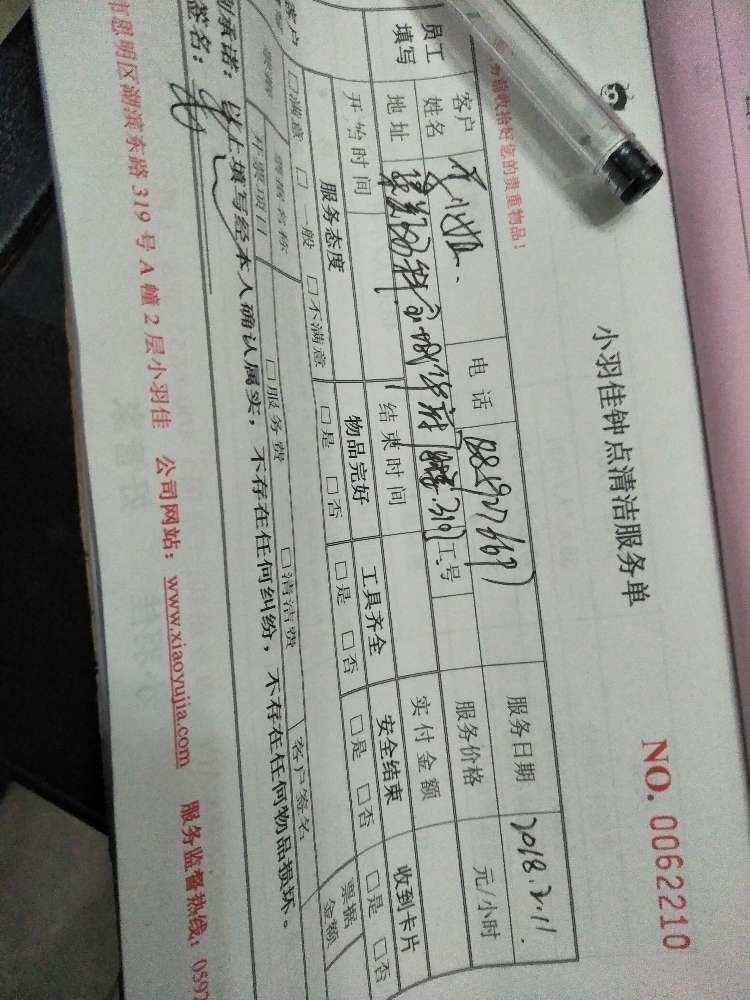 小羽佳钟点清洁服务单
NO. 0062210
收拾好您的贵重物品！
员工填写 客户姓名 小姐 电话 服务日期 2018.2.11.
地址 工号 服务价格 元/小时
开始时间 结束时间 实付金额
客户 服务态度 物品完好 工具齐全 安全结束 收到卡片
□满意 □一般 □不满意 □是 □否 □是 □否 □是 □否 □是 □否
票据名称 票据金额
开票项目 □服务费 □清洁费 客户签名
承诺：以上填写经本人确认属实，不存在任何纠纷，不存在任何物品损坏。
签名：
市思明区湖滨东路 319 号 A 幢 2 层小羽佳 公司网站：www.xiaoyujia.com 服务监督热线：0592